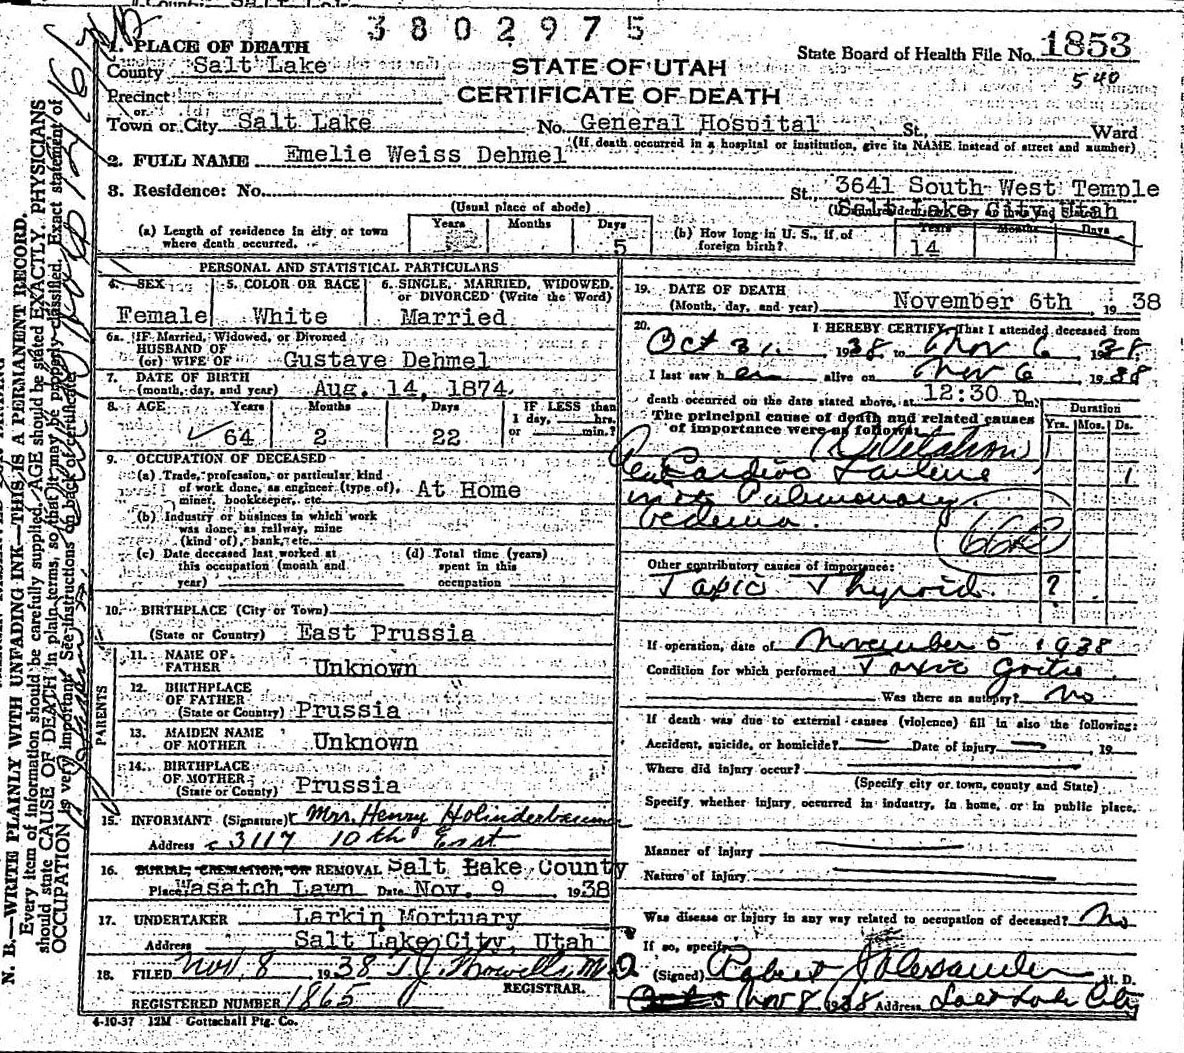 3802975
1. PLACE OF DEATH
County Salt Lake
STATE OF UTAH
State Board of Health File No. 1853
540
Precinct
CERTIFICATE OF DEATH
or
Town or City Salt Lake No. General Hospital St., Ward
(If death occurred in a hospital or institution, give its NAME instead of street and number)
2. FULL NAME Emelie Weiss Dehmel
3. Residence: No. St., 3641 South West Temple
(Usual place of abode) Salt Lake City Utah
(a) Length of residence in city or town where death occurred. Years Months Days 5
(b) How long in U. S., if of foreign birth? Years 14 Months Days
PERSONAL AND STATISTICAL PARTICULARS
4. SEX Female
5. COLOR OR RACE White
6. SINGLE, MARRIED, WIDOWED, or DIVORCED (Write the Word) Married
6a. IF Married, Widowed, or Divorced
HUSBAND OF
(or) WIFE OF Gustave Dehmel
7. DATE OF BIRTH
(month, day, and year) Aug. 14, 1874
8. AGE Years Months Days IF LESS than
1 day, hrs.
64 2 22 or min.?
9. OCCUPATION OF DECEASED
(a) Trade, profession, or particular kind
of work done, as engineer (type of), At Home
miner, bookkeeper, etc.
(b) Industry or business in which work
was done, as railway, mine
(kind of), bank, etc.
(c) Date deceased last worked at
this occupation (month and
year)
(d) Total time (years)
spent in this
occupation
10. BIRTHPLACE (City or Town)
(State or Country) East Prussia
PARENTS
11. NAME OF
FATHER Unknown
12. BIRTHPLACE
OF FATHER
(State or Country) Prussia
13. MAIDEN NAME
OF MOTHER Unknown
14. BIRTHPLACE
OF MOTHER
(State or Country) Prussia
15. INFORMANT (Signature) Mrs. Henry Holinderbaumer
Address 3117 10th East
16. BURIAL, CREMATION, OR REMOVAL Salt Lake County
Place Wasatch Lawn Date Nov. 9 1938
17. UNDERTAKER Larkin Mortuary
Address Salt Lake City, Utah
18. FILED Nov. 8 1938 T. J. Howells, M. D.
REGISTRAR.
REGISTERED NUMBER 1865
4-10-37 12M Gottschall Ptg. Co.
19. DATE OF DEATH
(Month, day, and year) November 6th, 1938
20. I HEREBY CERTIFY, That I attended deceased from
Oct 31, 1938 to Nov 6, 1938.
I last saw her alive on Nov 6 1938
death occurred on the date stated above, at 12:30 p m.
The principal cause of death and related causes
of importance were as follows:
Duration
Yrs. Mos. Ds.
Cardiac Failure 1
Pulmonary
oedema.
Other contributory causes of importance:
Toxic Thyroid. ?
If operation, date of November 5 1938
Condition for which performed Toxic Goitre
Was there an autopsy? No
If death was due to external causes (violence) fill in also the following:
Accident, suicide, or homicide? — Date of injury —, 19
Where did injury occur?
(Specify city or town, county and State)
Specify whether injury occurred in industry, in home, or in public place.
Manner of injury
Nature of injury
Was disease or injury in any way related to occupation of deceased? No
If so, specify
(Signed) Robert J Alexander M. D.
Nov 8 1938 Address Salt Lake City
N. B.—WRITE PLAINLY WITH UNFADING INK—THIS IS A PERMANENT RECORD.
Every item of information should be carefully supplied. AGE should be stated EXACTLY. PHYSICIANS
should state CAUSE OF DEATH in plain terms, so that it may be properly classified. Exact statement of
OCCUPATION is very important. See instructions on back of certificate.